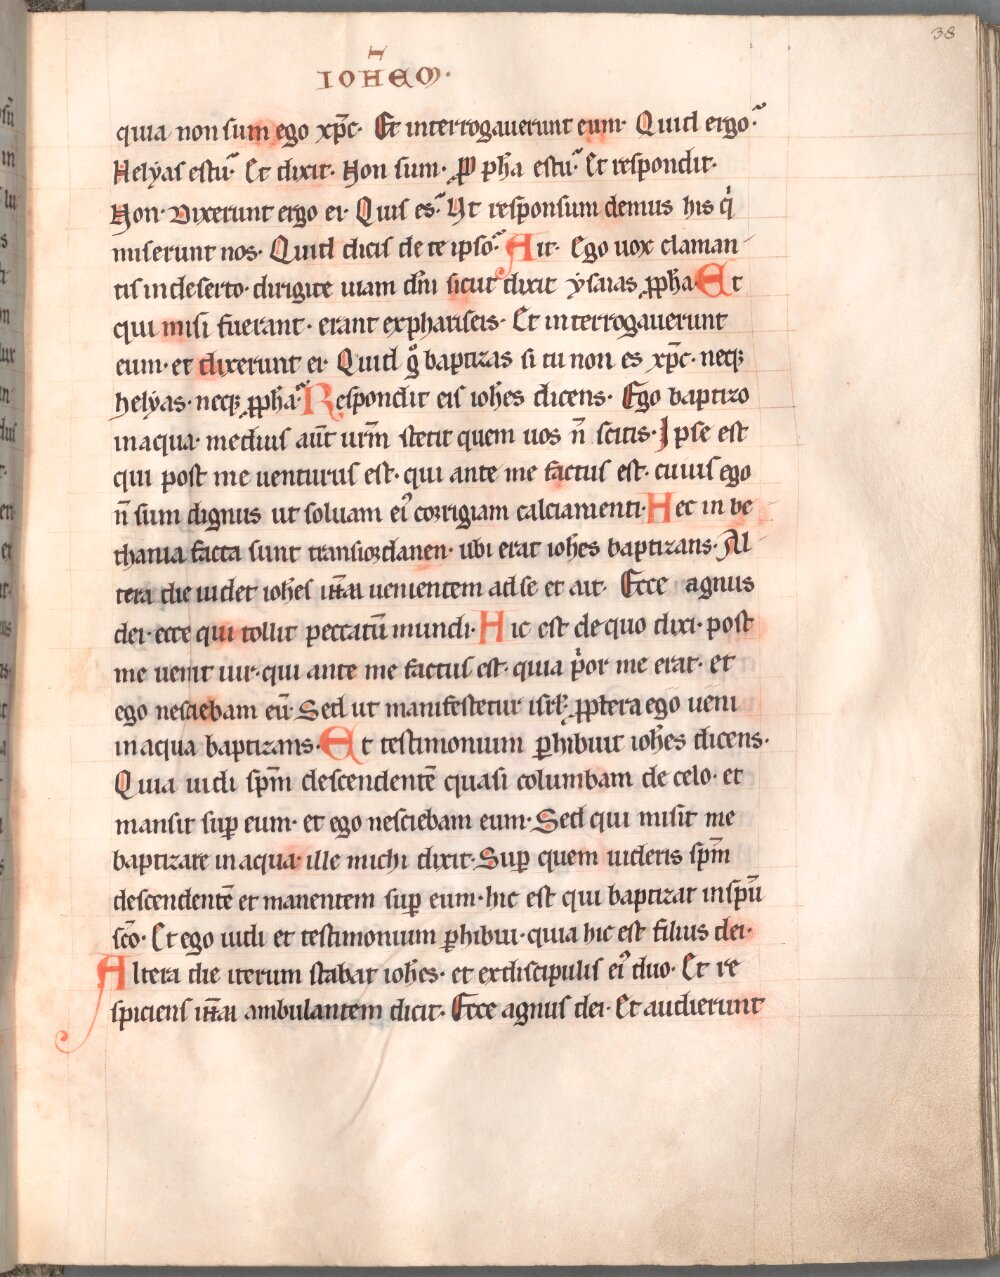 38
IOH̄EM·
quia non sum ego xp̄c· Et interrogauerunt eum· Quid ergo·
Helyas es tu· Et dixit· Non sum· P pha es tu· Et respondit·
Non· Dixerunt ergo ei· Quis es· Vt responsum demus his q̇
miserunt nos· Quid dicis de te ipso· Ait· Ego uox claman
tis in deserto· dirigite uiam dn̄i sicut dixit ysaias ꝓpha· Et
qui misi fuerant· erant ex phariseis· Et interrogauerunt
eum· et dixerunt ei· Quid gͦ baptizas si tu non es xp̄c· neqꝫ
helyas· neqꝫ ꝓpha· Respondit eis ioh̄es dicens· Ego baptizo
in aqua· medius aut̄ urm̄ stetit quem uos n̄ scitis· Ipse est
qui post me uenturus est· qui ante me factus est· cuius ego
n̄ sum dignus ut soluam ei᾽ corrigiam calciamenti· Hec in be
thania facta sunt trans iordanen· ubi erat ioh̄es baptizans· Al
tera die uidet ioh̄es ih̄m uenientem ad se et ait· Ecce agnus
dei· ecce qui tollit peccatū mundi· Hic est de quo dixi· post
me uenit uir· qui ante me factus est· quia p̍or me erat· et
ego nesciebam eū· Sed ut manifestetur isrł· ꝓpterea ego ueni
in aqua baptizans· Et testimonium ꝑhibuit ioh̄es dicens·
Quia uidi sp̄m descendentē quasi columbam de celo· et
mansit suꝑ eum· et ego nesciebam eum· Sed qui misit me
baptizare in aqua· ille michi dixit· Suꝑ quem uideris sp̄m
descendentē et manentem suꝑ eum· hic est qui baptizat in spū
sc̄o· Et ego uidi et testimonium ꝑhibui· quia hic est filius dei·
Altera die iterum stabat ioh̄es· et ex discipulis ei᾽ duo· Et re
spiciens ih̄m ambulantem dicit· Ecce agnus dei· Et audierunt